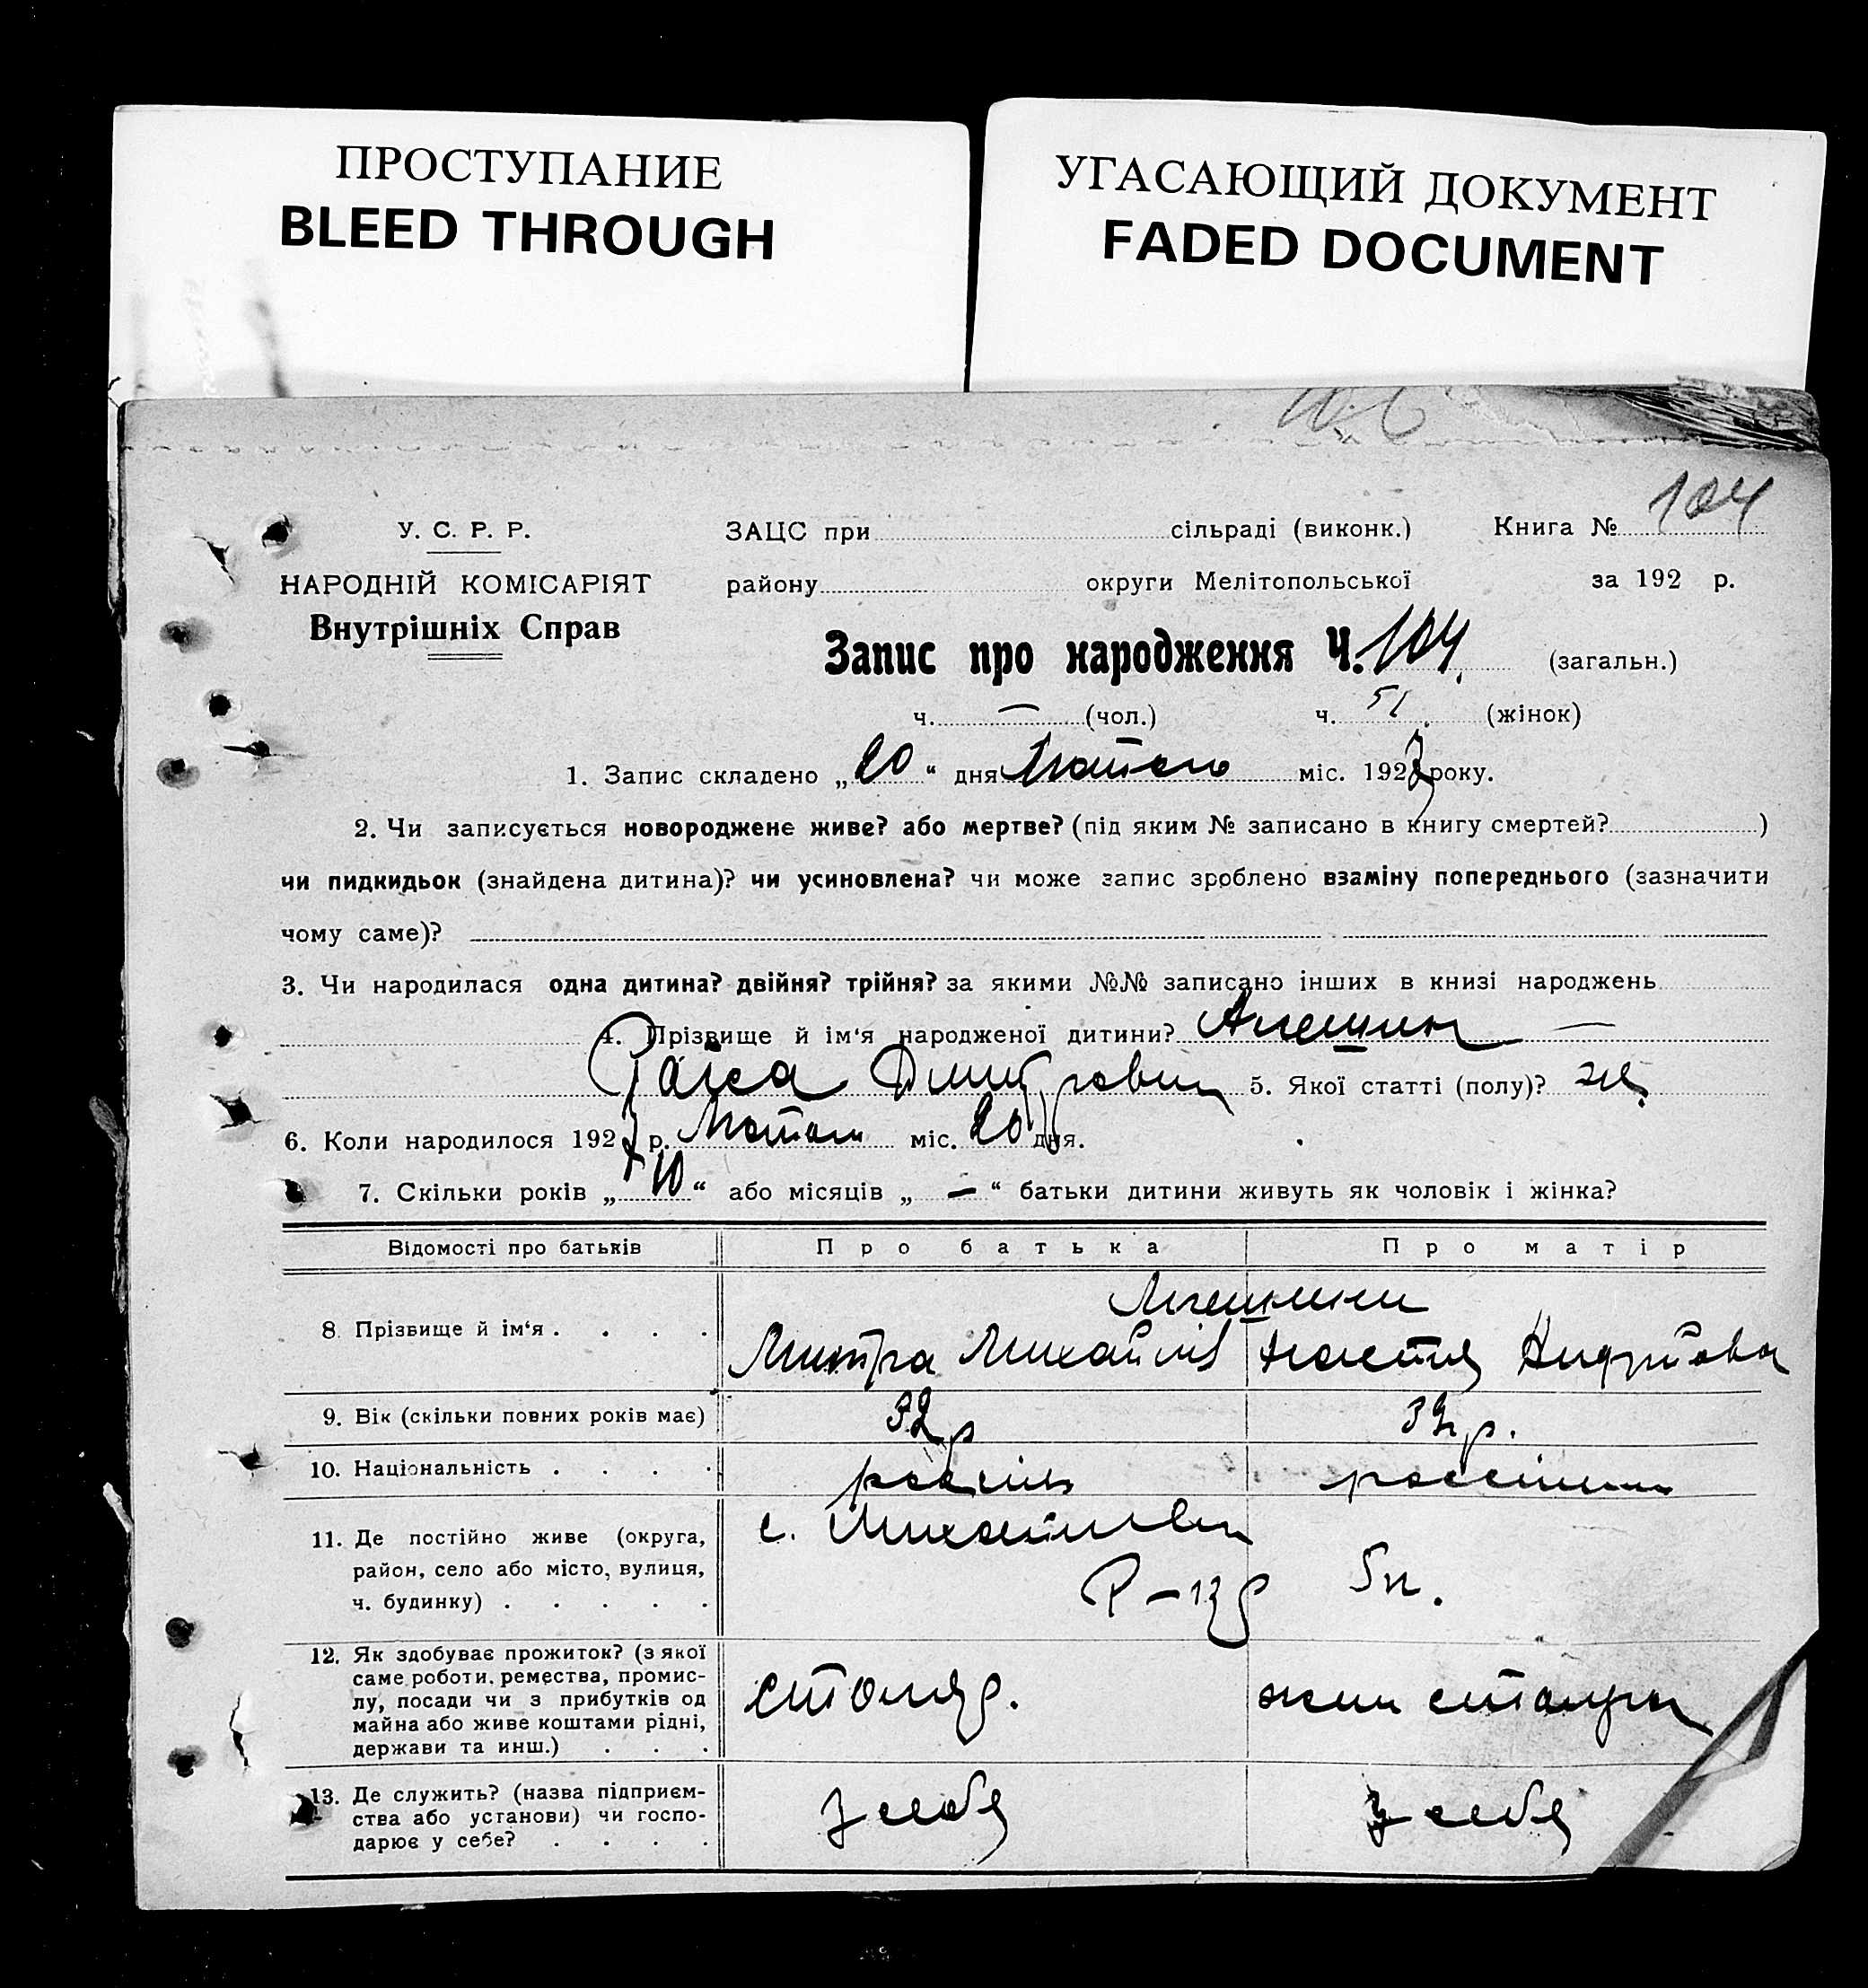 ПРОСТУПАНИЕ
BLEED THROUGH
УГАСАЮЩИЙ ДОКУМЕНТ
FADED DOCUMENT
У. С. Р. Р.
НАРОДНІЙ КОМІСАРІЯТ
Внутрішніх Справ
ЗАЦС при сільраді (виконк.) Книга № 104
району округи Мелітопольської за 192 р.
Запис про народження Ч. 104. (загальн.)
ч. — (чол.) ч. 51. (жінок)
1. Запис складено „20“ дня міс. 1927 року.
2. Чи записується новороджене живе? або мертве? (під яким № записано в книгу смертей? )
чи пидкидьок (знайдена дитина)? чи усиновлена? чи може запис зроблено взаміну попереднього (зазначити
чому саме)?
3. Чи народилася одна дитина? двійня? трійня? за якими №№ записано інших в книзі народжень
4. Прізвище й ім‘я народженої дитини? —
Раїса 5. Якої статті (полу)? ж.
6. Коли народилося 1927 р. міс. 20 дня.
7. Скільки років „10“ або місяців „—“ батьки дитини живуть як чоловік і жінка?
Відомості про батьків
Про батька
Про матір
8. Прізвище й ім‘я . . . .
Михайлів
Настя
9. Вік (скільки повних років має)
32 р
32 р.
10. Національність . . . .
11. Де постійно живе (округа,
район, село або місто, вулиця,
ч. будинку) . . . . .
с.
12. Як здобуває прожиток? (з якої
саме роботи, ремества, промис-
лу, посади чи з прибутків од
майна або живе коштами рідні,
держави та инш.) . . .
столяр.
13. Де служить? (назва підприєм-
ства або установи) чи госпо-
дарює у себе? . . . .
у себя
у себя